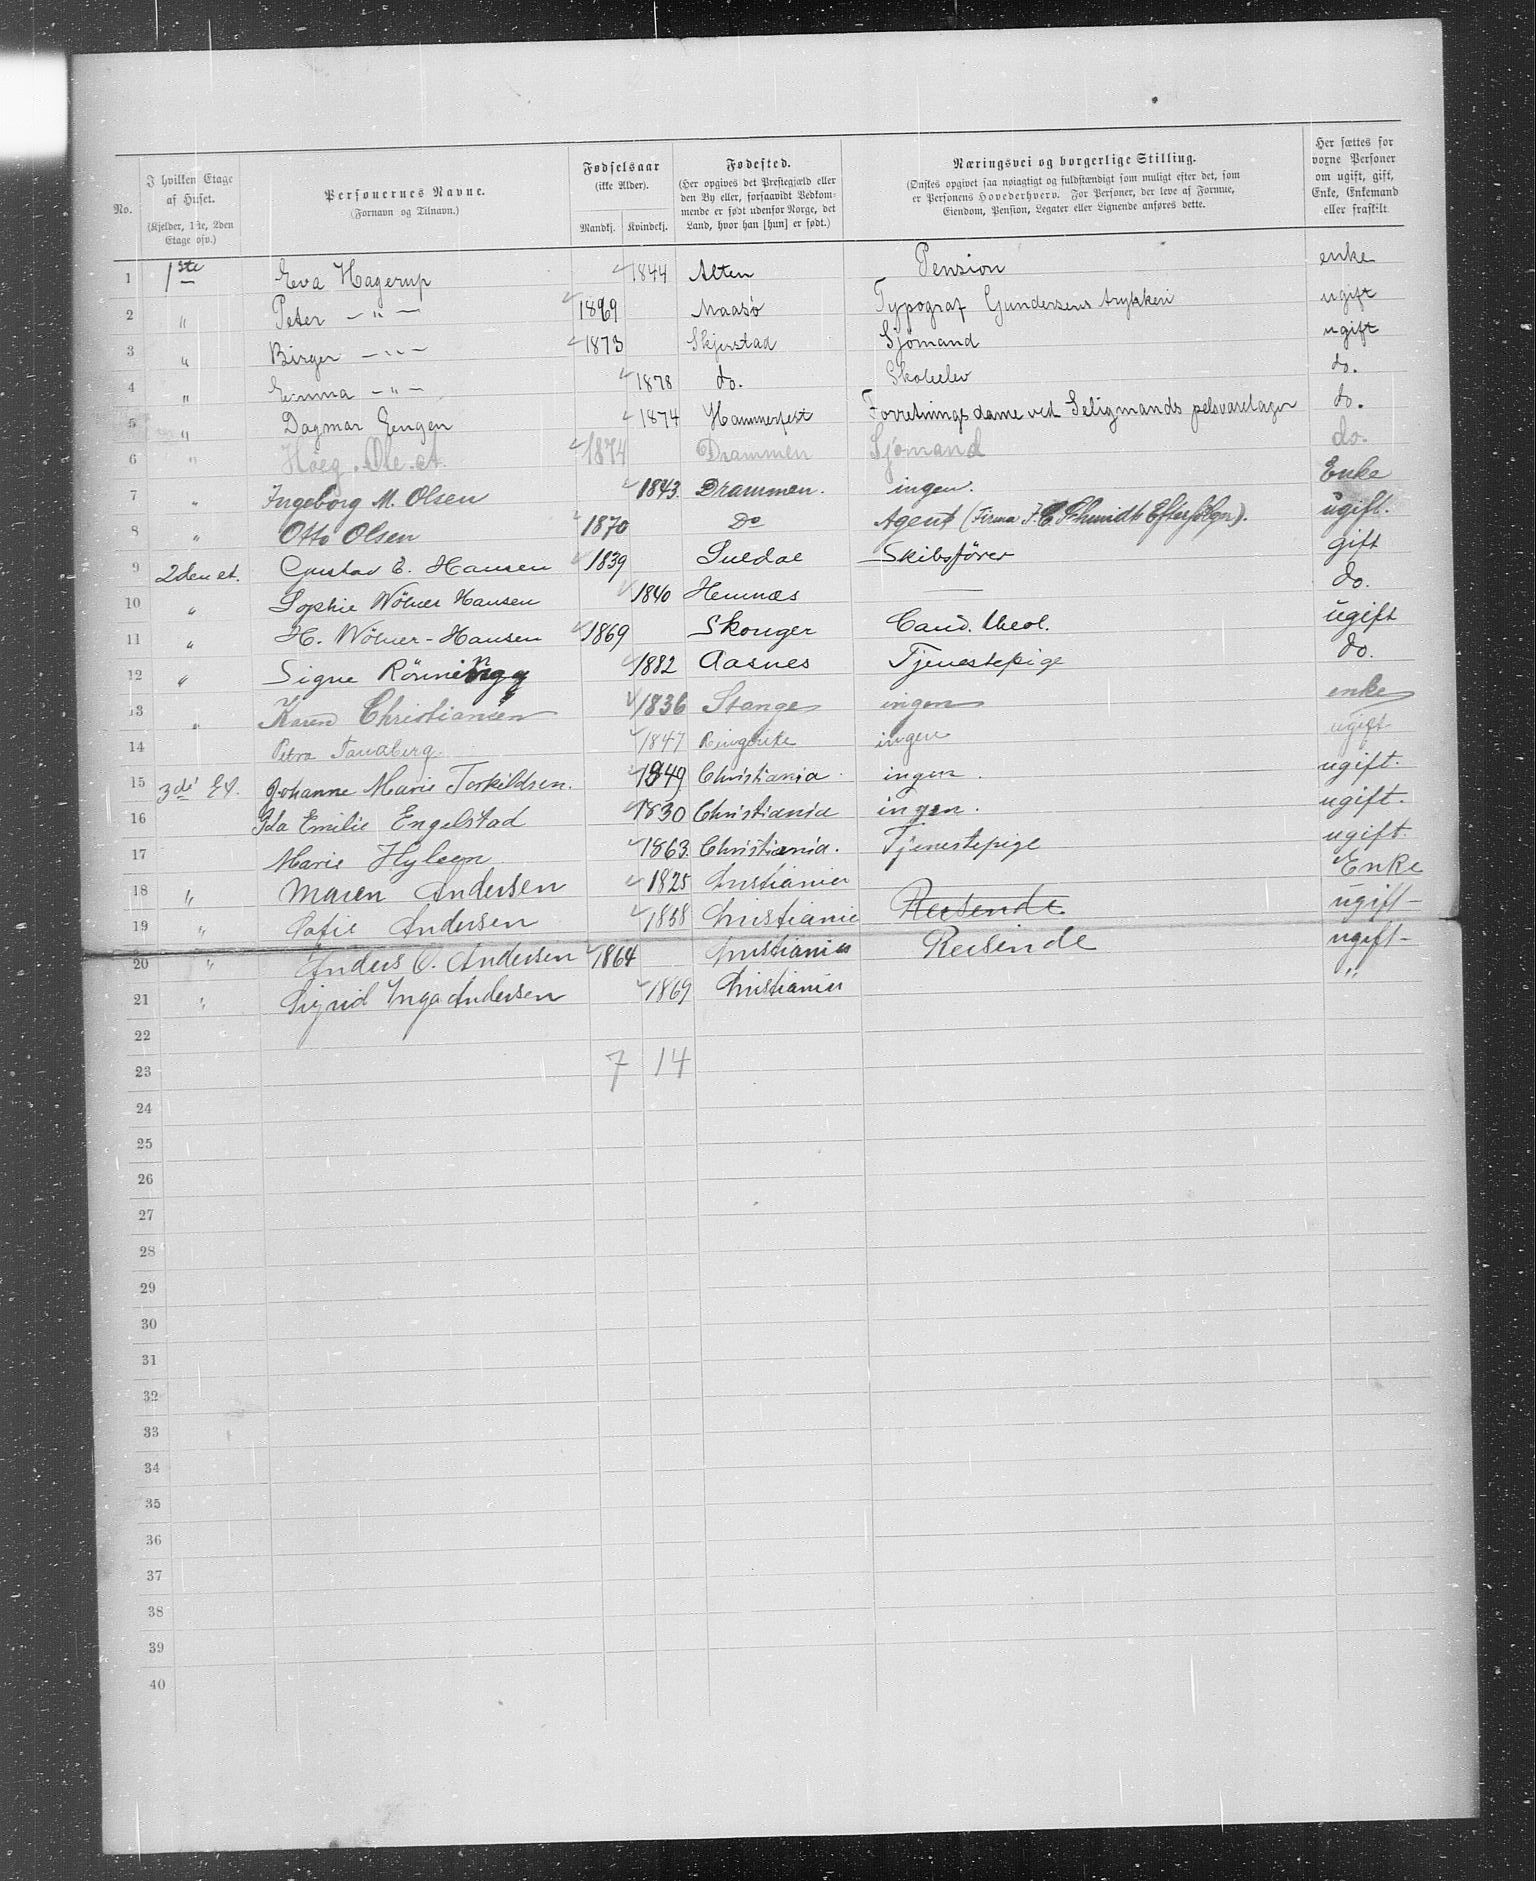 No. | I hvilken Etage af Huset. (Kjelder, 1ste, 2den Etage osv.) | Personernes Navne. (Fornavn og Tilnavn.) | Fødselsaar (ikke Alder). Mandkj. | Kvindekj. | Fødested. (Her opgives det Prestegjæld eller den By eller, forsaavidt Vedkommende er født udenfor Norge, det Land, hvor han [hun] er født.) | Næringsvei og borgerlige Stilling. (Ønskes opgivet saa nøiagtigt og fuldstændigt som muligt efter det, som er Personens Hovederhverv. For Personer, der leve af Formue, Eiendom, Pension, Legater eller Lignende anføres dette. | Her sættes for voxne Personer om ugift, gift, Enke, Enkemand eller fraskilt
1 1ste Eva Hagerup 1844 Alten Pension enke
2 " Peter — " — 1869 Maasö Typograf Gundersens trykkeri ugift
3 " Birger — " — 1873 Skjerstad Sjömand ugift
4 " Emma — " — 1878 do. Skoleelev do.
5 " Dagmar Eengen 1874 Hammerfest Forretningsdame ved Seligmands pelsvarelager do.
6 " Höeg. Ole. A. 1874 Drammen Sjömand do.
7 " Ingeborg M. Olsen 1843. Drammen. ingen. Enke
8 " Otto Olsen 1870 Do Agent (Firma F. C. Schmidts Efterfölger). ugift.
9 2den et. Gustav E. Hansen 1839 Suldal Skibsförer gift
10 " Sophie Wölner Hansen 1840 Hemnæs — do.
11 " H. Wölner-Hansen 1869 Skonger Cand. theol. ugift
12 " Signe Rönning 1882 Aasnes Tjenestepige do.
13 " Karen Christiansen 1836 Stange ingen enke
14 Petra Tandberg. 1847 Ringerike ingen ugift
15 3die Et. Johanne Marie Torkildsen. 1849 Christiania. ingen. ugift.
16 Ida Emilie Engelstad 1830 Christiania ingen. ugift.
17 Marie Hyleen 1863. Christiania. Tjenestepige ugift.
18 " Maren Andersen 1825 Christiania Enke
19 " Sofie Andersen 1858 Christiania Reisende ugift—
20 " Anders O. Andersen 1864 Christiania Reisende ugift—
21 " Sigrid Inga Andersen 1869 Christiania "
22
23 7 14
24
25
26
27
28
29
30
31
32
33
34
35
36
37
38
39
40